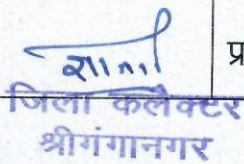 प्र
जिला कलेक्टर
श्रीगंगानगर